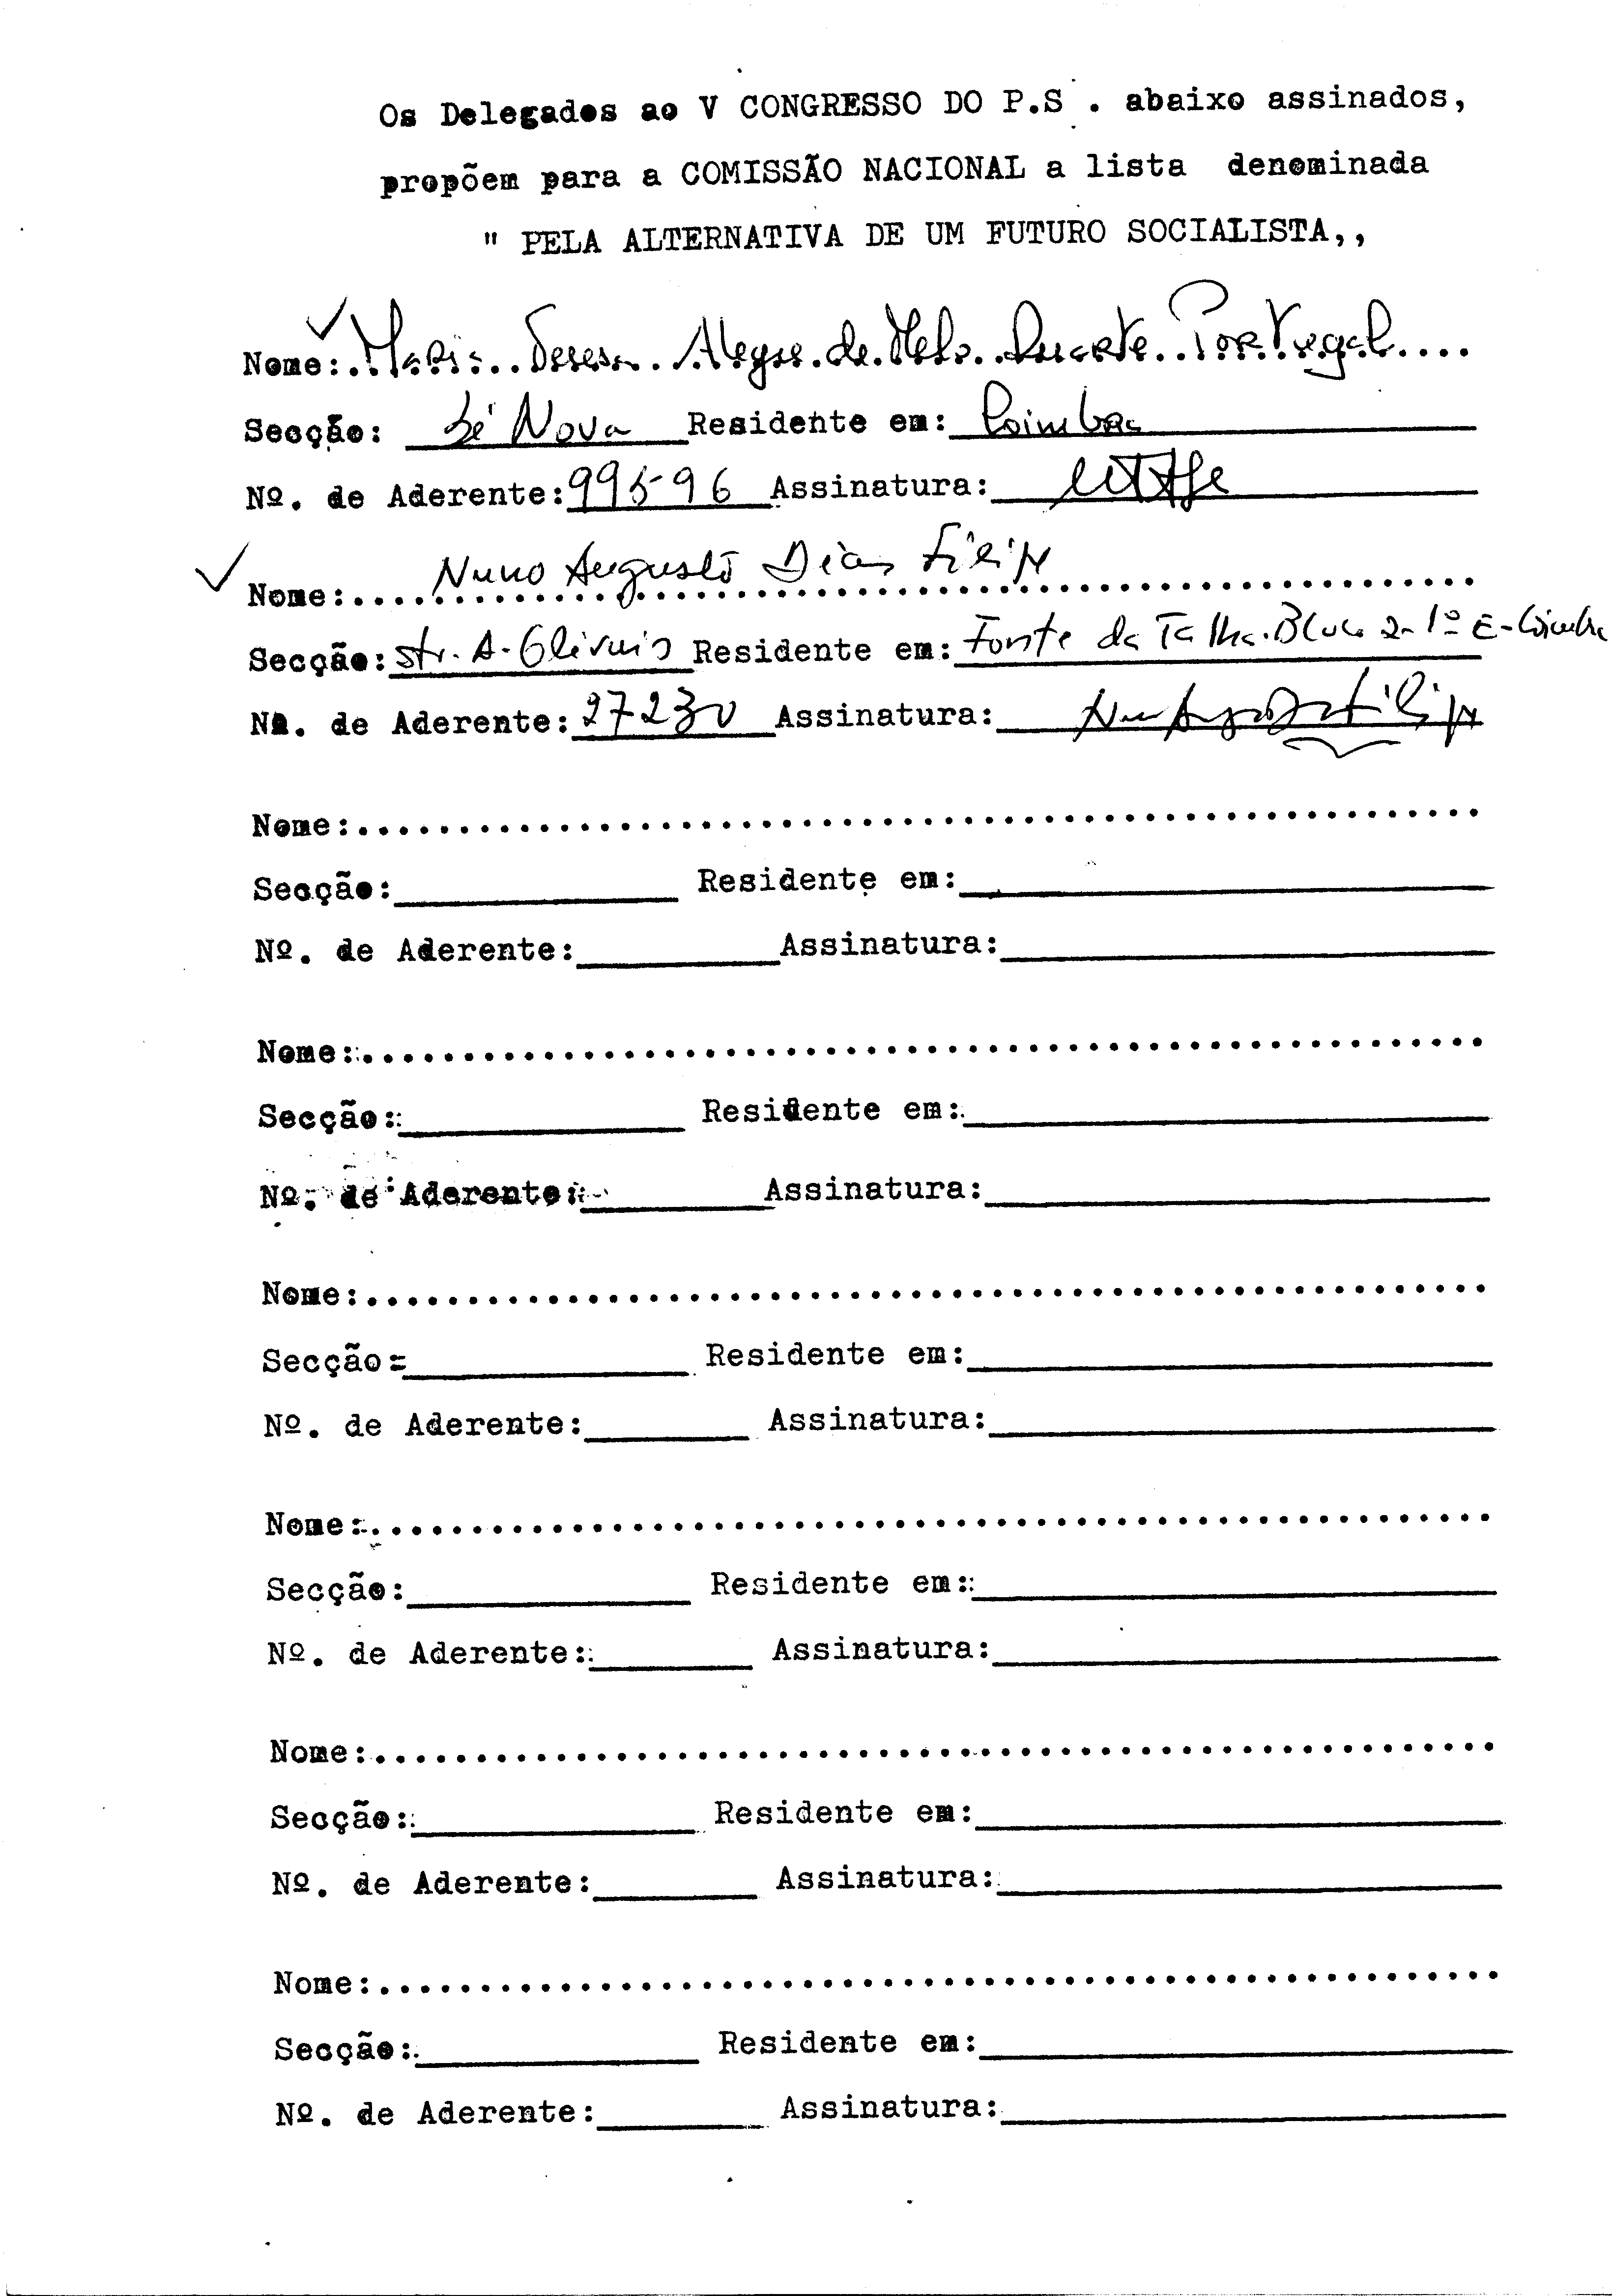 Os Delegados ao V CONGRESSO DO P.S . abaixo assinados,
propõem para a COMISSÃO NACIONAL a lista denominada
" PELA ALTERNATIVA DE UM FUTURO SOCIALISTA,,
Nome: Maria Teresa Alegre de Melo Duarte Portugal....
Secção: Sé Nova Residente em: Coimbra
Nº. de Aderente: 99596 Assinatura:
Nome: Nuno Augusto Dias Filipe
Secção: Str. A. Olivais Residente em: Fonte da Talha. Bloco 2-1º E-Coimbra
Nº. de Aderente: 27230 Assinatura:
Nome:
Secção: Residente em:
Nº. de Aderente: Assinatura:
Nome:
Secção: Residente em:
Nº. de Aderente: Assinatura:
Nome:
Secção: Residente em:
Nº. de Aderente: Assinatura:
Nome:
Secção: Residente em:
Nº. de Aderente: Assinatura:
Nome:
Secção: Residente em:
Nº. de Aderente: Assinatura:
Nome:
Secção: Residente em:
Nº. de Aderente: Assinatura: